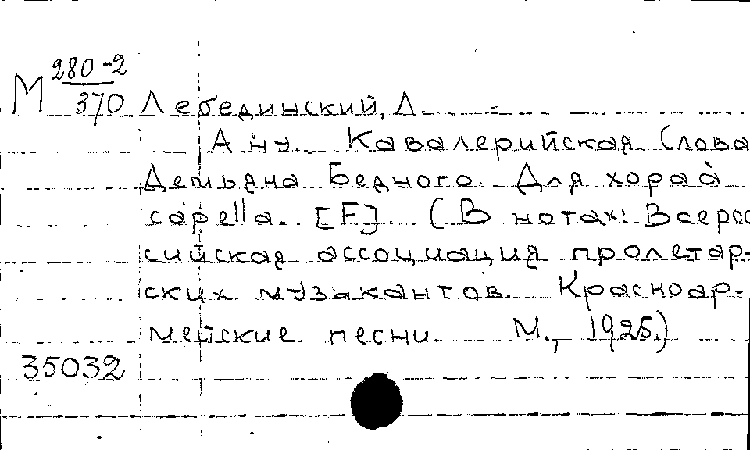 М 280-2/370 Лебединский, Л.
А ну. Кавалерийская Слова
Демьяна Бедного. Для хора à
capella. [F] (В нотах: Всерос
сийская ассоциация пролетар-
ских музыкантов. Красноар-
мейские песни М., 1925.)
35032